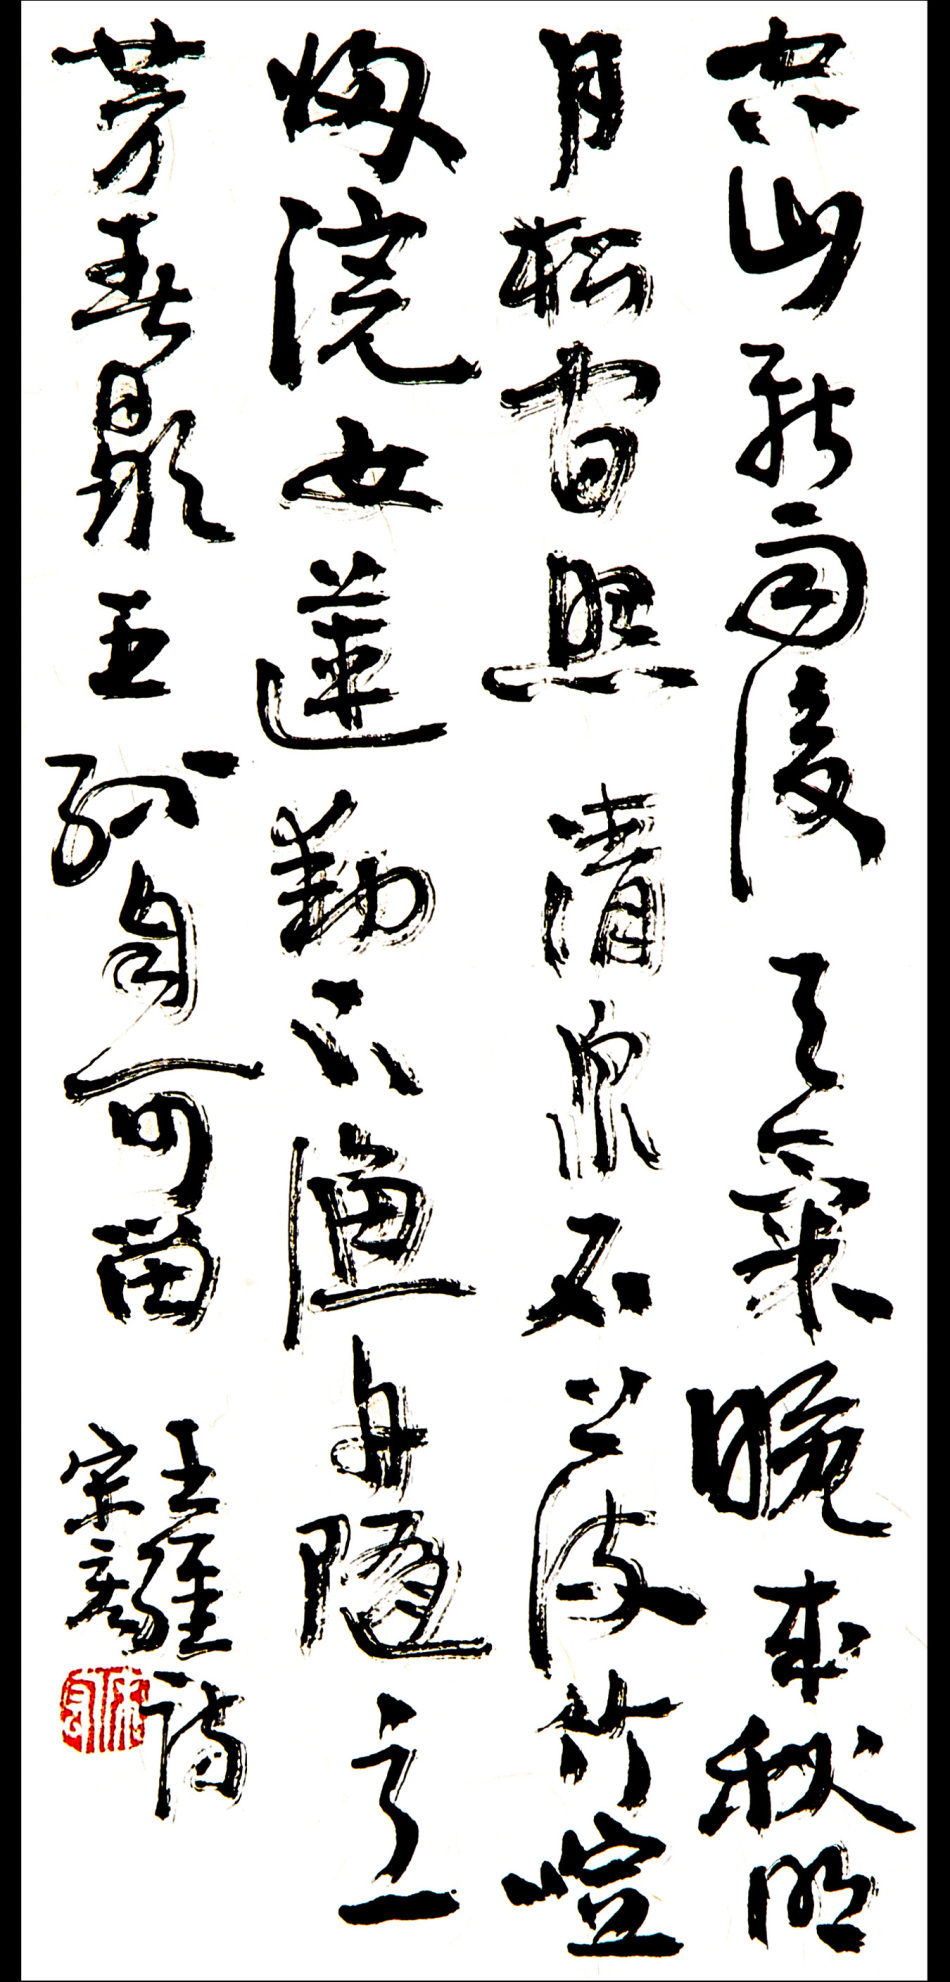 空山新雨後天氣晚來秋明
月松間照清泉石上流竹喧
歸浣女蓮動下漁舟隨意
芳春歇王孫自可留
王維詩